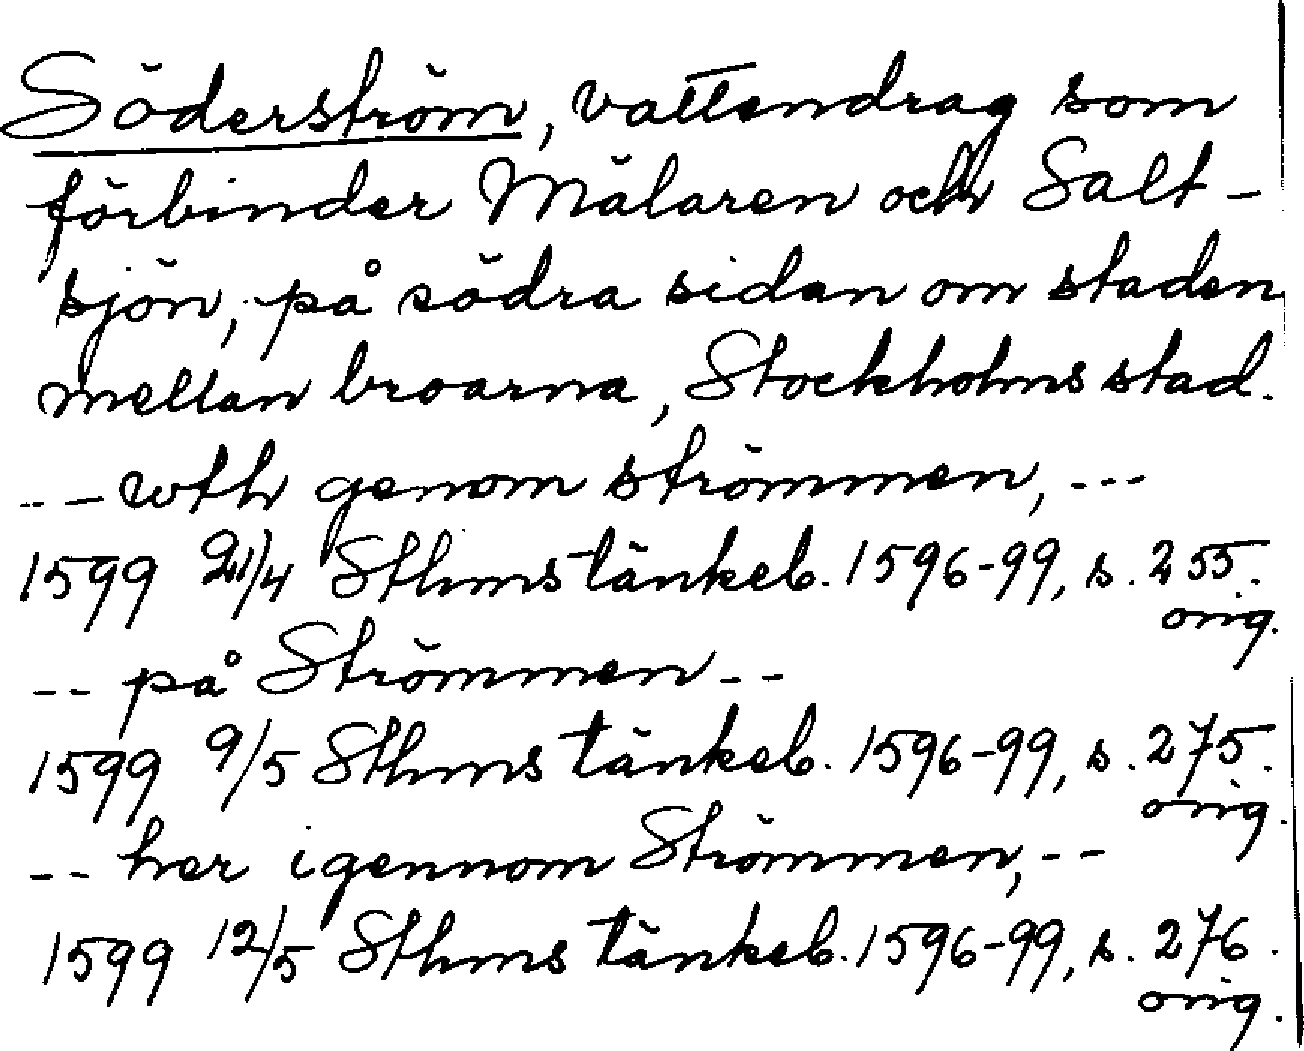 Söderström, vattendrag som
förbinder Mälaren och Salt-
sjön, på södra sidan om staden
mellan broarna, Stockholms stad.
--- wth genom strömmen, ---
1599 21/4 Sthms tänkeb. 1596-99, s. 255.
orig.
-- på Strömmen --
1599 9/5 Sthms tänkeb. 1596-99, s. 275.
orig.
-- her igennom Strömmen, --
1599 12/5 Sthms tänkeb. 1596-99, s. 276.
orig.